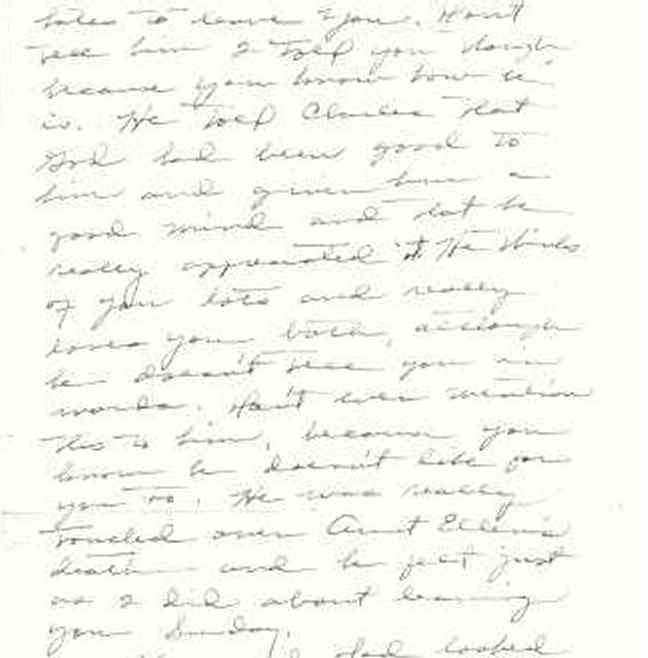 hates to leave you. Don't
tell him I told you though
because you know how he
is. He told Charles that
God had been good to
him and given him a
good mind and that he
really appreciated it. He thinks
of you lots and really
loves you both, although
he doesn't tell you in
words. Don't even mention
this to him, because you
know he doesn't like for
you to. He was really
touched over Aunt Ellen's
death and he felt just
as I did about leaving
you Sunday.
had looked